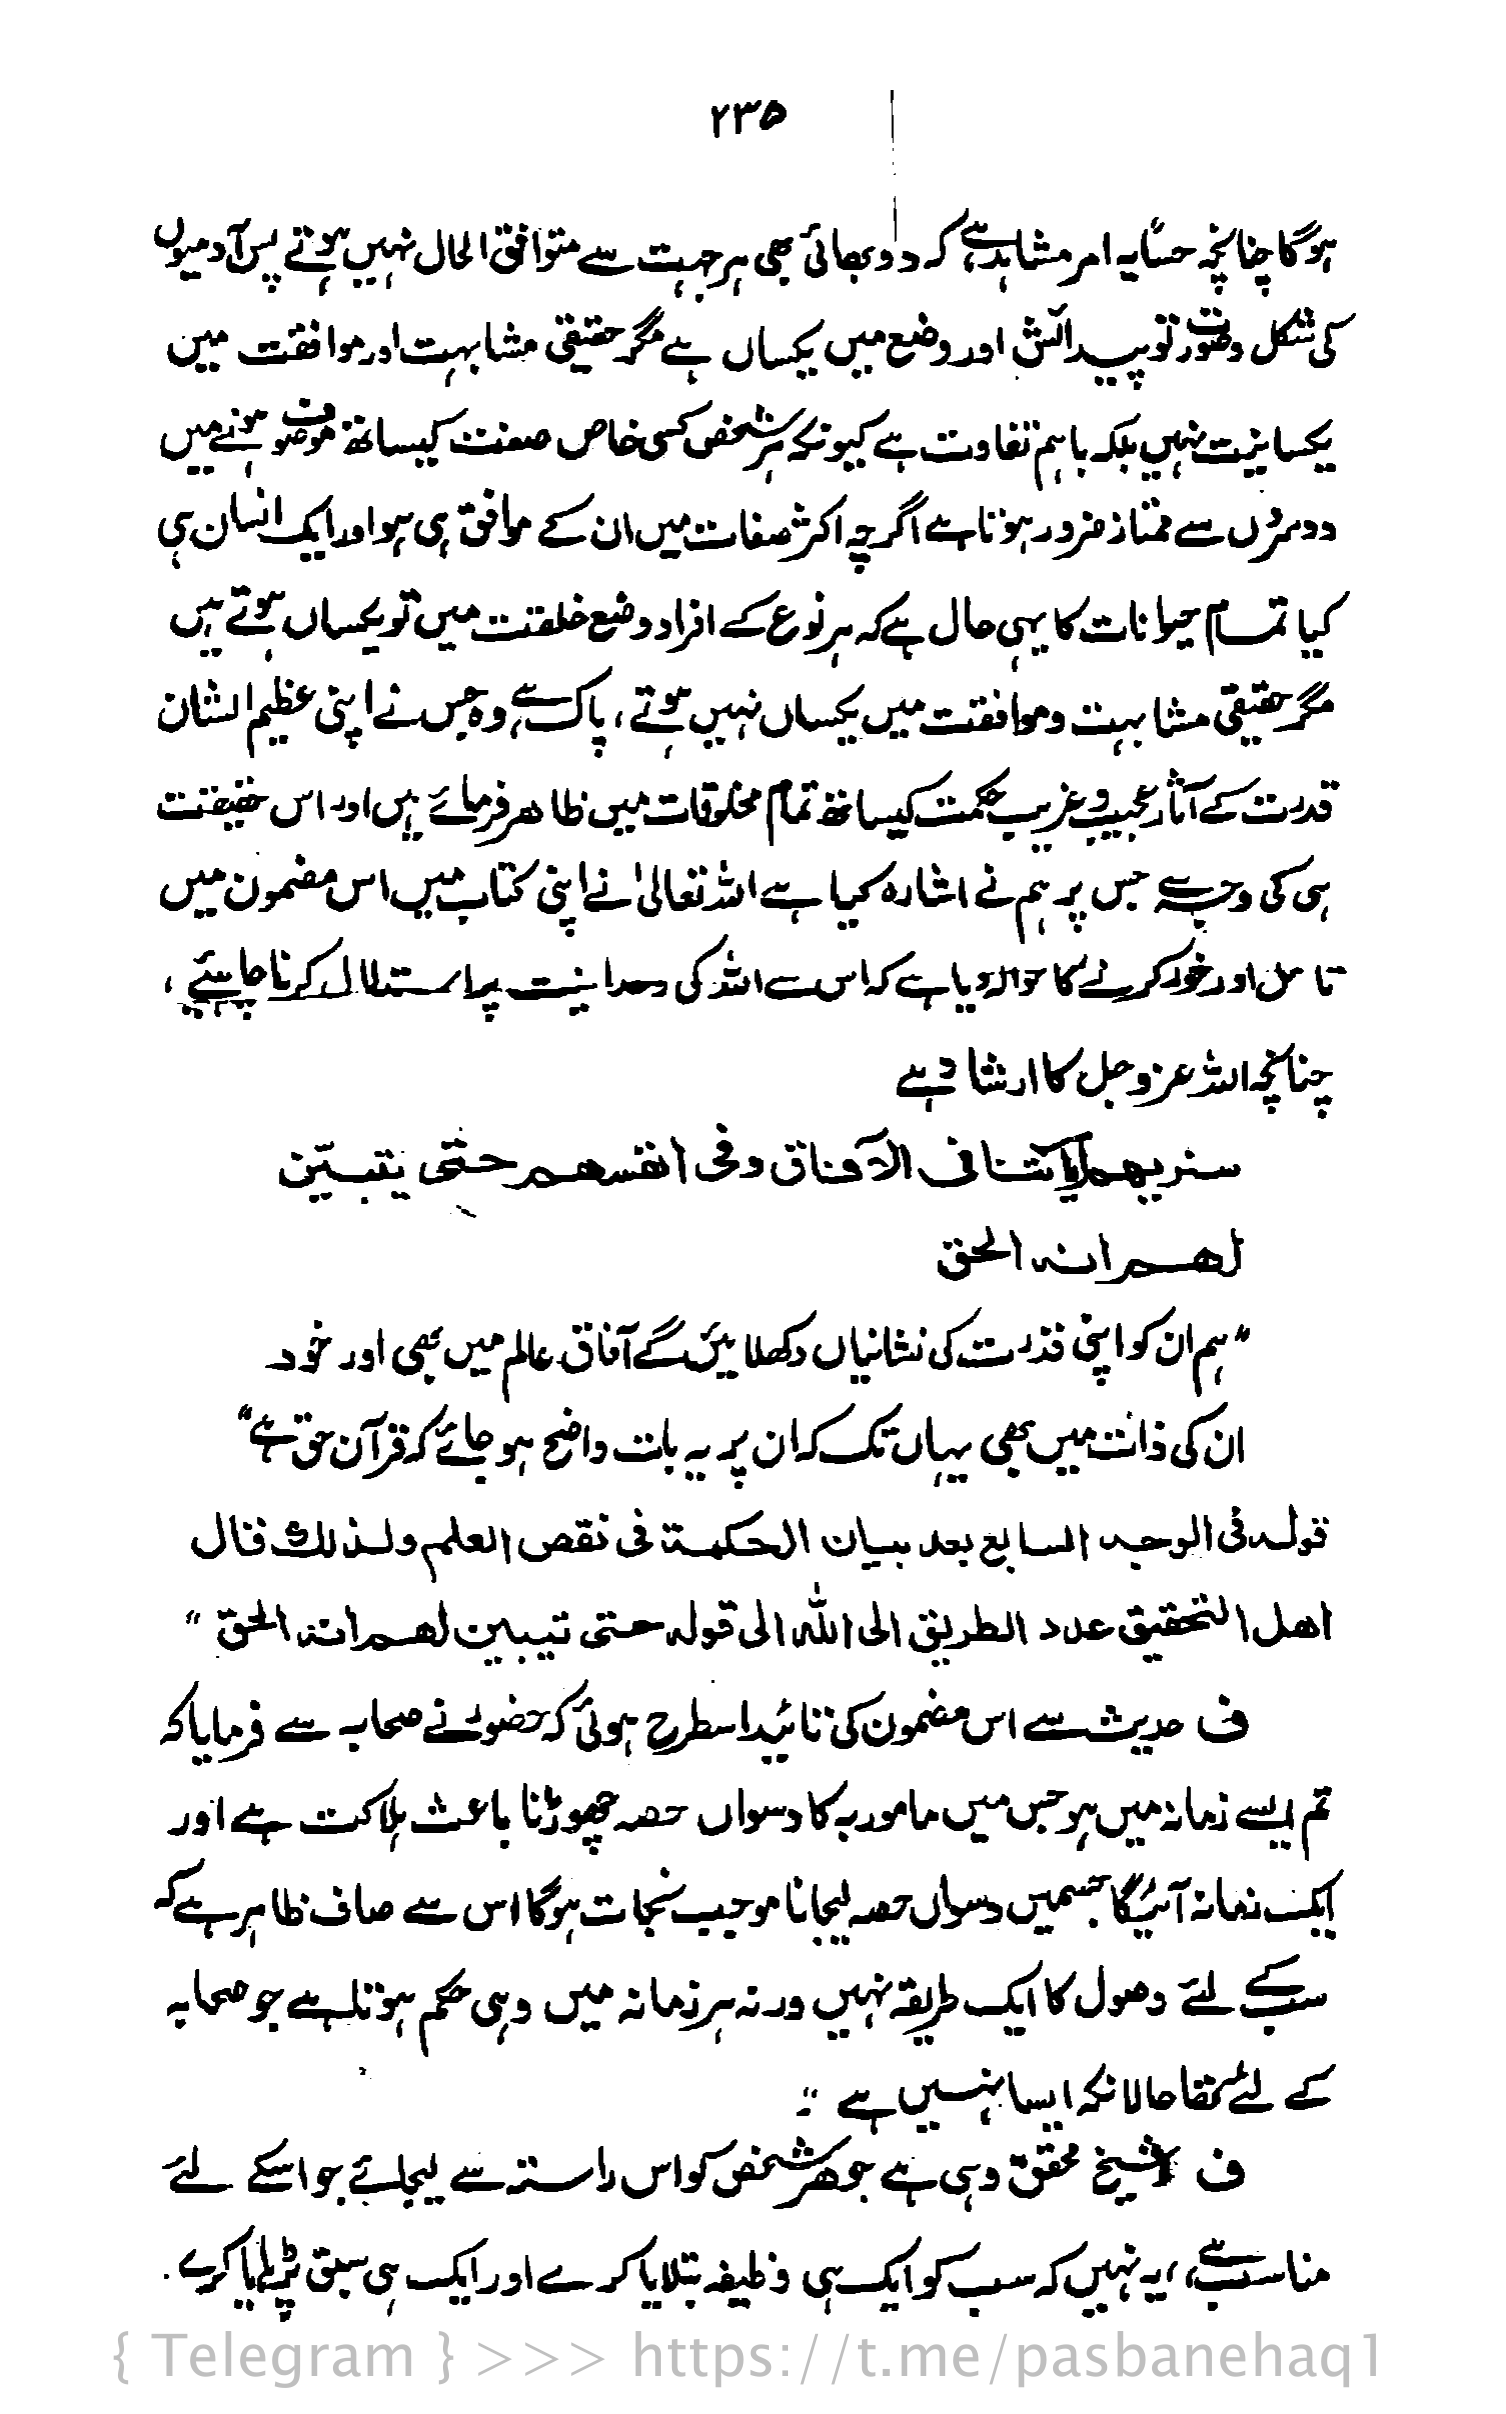 ۲۳۵
ہوگا چنانچہ حسًا یہ امر مشاہد ہے کہ دو بھائی بھی ہر جہت سے متوافق الحال نہیں ہوتے پس آدمیوں
کی شکل وصورت تو پیدائش اور وضع میں یکساں ہے مگر حقیقی مشابہت اور موافقت میں
یکسانیت نہیں بلکہ باہم تفاوت ہے کیونکہ ہر شخص کسی خاص صفت کیساتھ موصوف ہونے میں
دوسروں سے ممتاز ضرور ہوتا ہے اگرچہ اکثر صفات میں ان کے موافق ہی ہو اور ایک انسان ہی
کیا تمام حیوانات کا یہی حال ہے کہ ہر نوع کے افراد وضع خلقت میں تو یکساں ہوتے ہیں
مگر حقیقی مشابہت وموافقت میں یکساں نہیں ہوتے، پاک ہے وہ جس نے اپنی عظیم الشان
قدرت کے آثار عجیب و غریب حکمت کیساتھ تمام مخلوقات میں ظاہر فرمائے ہیں اور اس حقیقت
ہی کی وجہ سے جس پر ہم نے اشارہ کیا ہے اللہ تعالیٰ نے اپنی کتاب میں اس مضمون میں
تامل اور غور کرنے کا حوالہ دیا ہے کہ اس سے اللہ کی وحدانیت پر استدلال کرنا چاہئیے،
چنانچہ اللہ عزوجل کا ارشاد ہے
سنریھم اٰیاتنا فی الآفاق وفی انفسھم حتی یتبیّن
لھم انہ الحق
"ہم ان کو اپنی قدرت کی نشانیاں دکھلائیں گے آفاق عالم میں بھی اور خود
ان کی ذات میں بھی یہاں تک کہ ان پر یہ بات واضح ہو جائے کہ قرآن حق ہے"
قولہ فی الوجہ السابع بعد بیان الحکمة فی نقص العلم ولذلك قال
اھل التحقیق عدد الطریق الی اللہ الی قولہ حتی تیبین لھم انہ الحق "
ف حدیث سے اس مضمون کی تائید اسطرح ہوئی کہ حضورؐ نے صحابہ سے فرمایا کہ
تم ایسے زمانہ میں ہو جس میں مامور بہ کا دسواں حصہ چھوڑنا باعث ہلاکت ہے اور
ایک زمانہ آئیگا جسمیں دسواں حصہ لیجانا موجب نجات ہوگا اس سے صاف ظاہر ہے کہ
سب کے لئے وصول کا ایک طریقہ نہیں ورنہ ہر زمانہ میں وہی حکم ہوتا ہے جو صحابہ
کے لئے تھا حالانکہ ایسا نہیں ہے "۔
ف شیخ محقق وہی ہے جو ہر شخص کو اس راستہ سے لیجائے جو اسکے لئے
مناسب ہے، یہ نہیں کہ سب کو ایک ہی وظیفہ بتلایا کرے اور ایک ہی سبق پڑہایا کرے.
{ Telegram } >>> https://t.me/pasbanehaq1